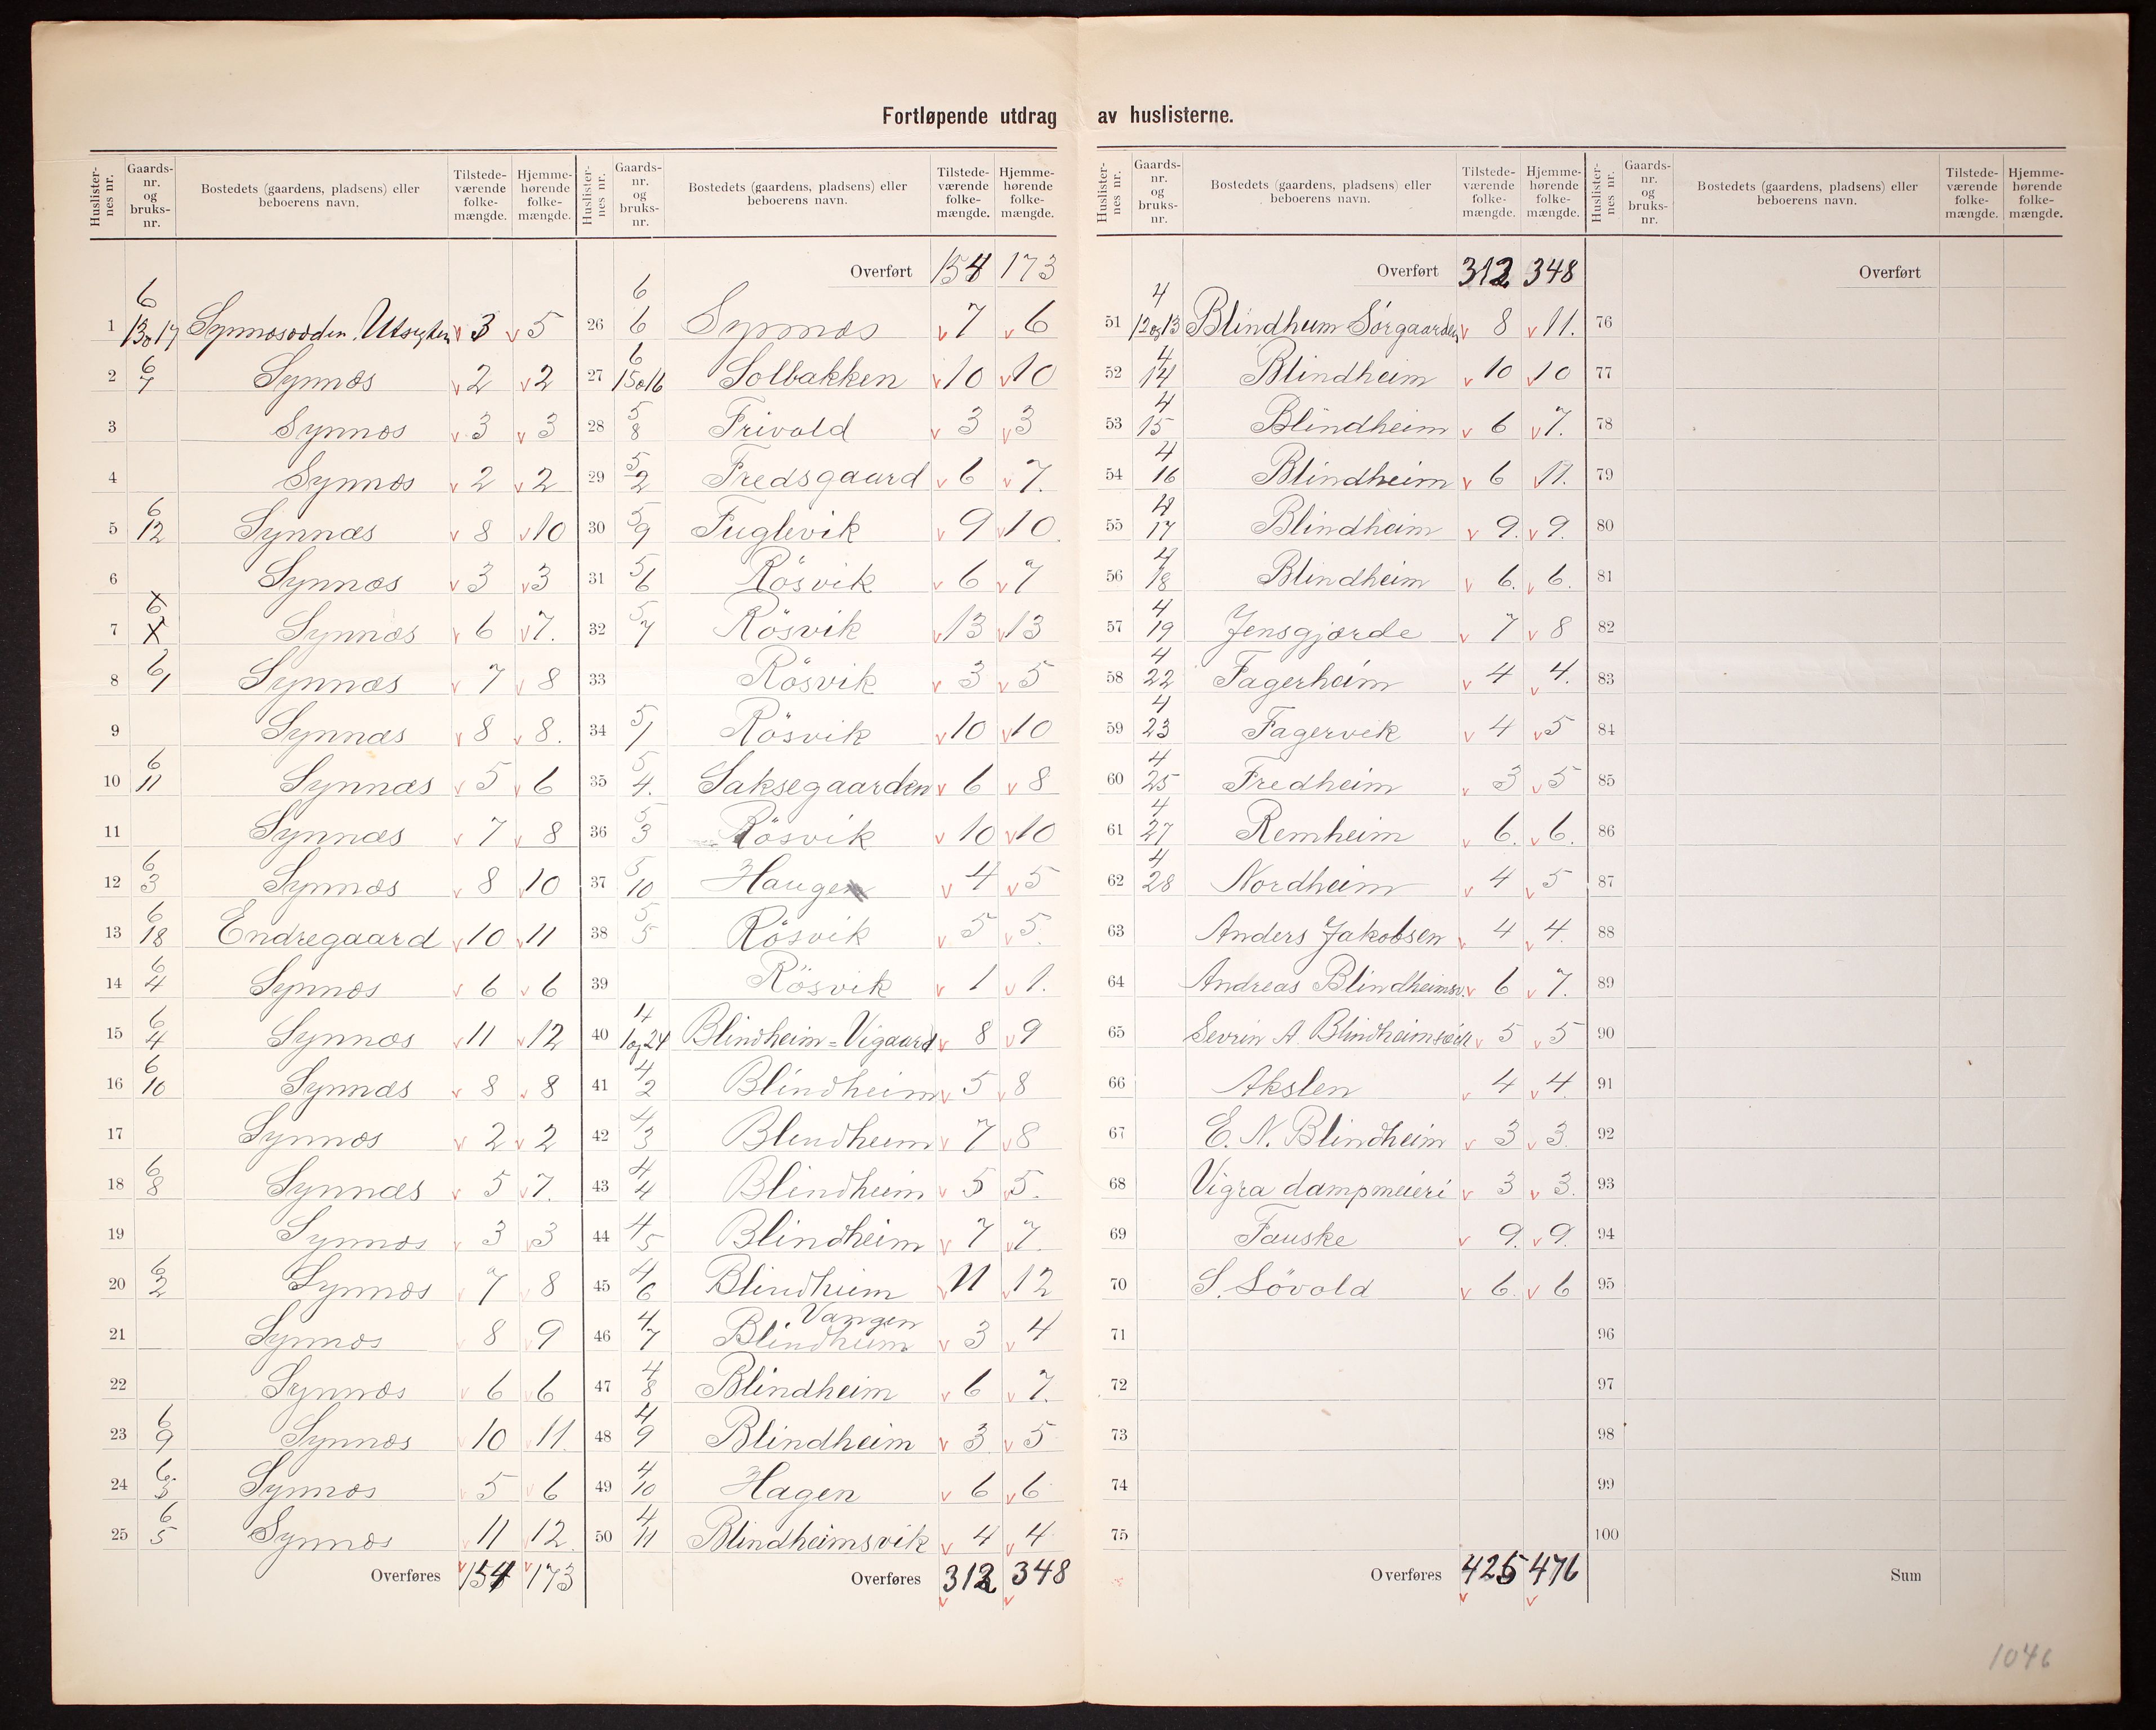 Fortløpende utdrag av huslisterne.
Huslister-nes nr. Gaards-nr. og bruks-nr. Bostedets (gaardens, pladsens) eller beboerens navn. Tilstede-værende folke-mængde. Hjemme-hørende folke-mængde.
1 6 13o17 Synnæsodden, Utsigten v 3 v 5
2 6 7 Synnæs v 2 v 2
3 Synnæs v 3 v 3
4 Synnæs v 2 v 2
5 6 12 Synnæs v 8 v 10
6 Synnæs v 3 v 3
7 6 X Synnæs v 6 v 7.
8 6 1 Synnæs v 7 v 8
9 Synnæs v 8 v 8.
10 6 11 Synnæs v 5 v 6
11 Synnæs v 7 v 8
12 6 3 Synnæs v 8 v 10
13 6 18 Endregaard v 10 v 11
14 6 4 Synnæs v 6 v 6
15 6 4 Synnæs v 11 v 12
16 6 10 Synnæs v 8 v 8
17 Synnæs v 2 v 2
18 6 8 Synnæs v 5 v 7.
19 Synnæs v 3 v 3
20 6 2 Synnæs v 7 v 8
21 Synnæs v 8 v 9
22 Synnæs v 6 v 6
23 6 9 Synnæs v 10 v 11
24 6 Synnæs v 5 v 6
25 6 5 Synnæs v 11 v 12.
Overføres v 154 v 173
Huslister-nes nr. Gaards-nr. og bruks-nr. Bostedets (gaardens, pladsens) eller beboerens navn. Tilstede-værende folke-mængde. Hjemme-hørende folke-mængde.
Overført 154 173
26 6 6 Synnæs v 7 v 6
27 6 15o16 Solbakken v 10 v 10
28 5 8 Frivold v 3 v 3
29 5 2 Fredsgaard v 6 v 7.
30 5 9 Fuglevik v 9 v 10.
31 5 6 Rösvik v 6 v 7
32 5 7 Rösvik v 13 v 13
33 Rösvik v 3 v 5
34 5 1 Rösvik v 10 v 10
35 5 4. Saksegaarden v 6 v 8
36 5 3 Rösvik v 10 v 10
37 5 10 Haugen v 4 v 5
38 5 5 Rösvik v 5 v 5.
39 Rösvik v 1 v 1.
40 4 1og24 Blindheim=Vigaard v 8 v 9
41 4 2 Blindheim v 5 v 8
42 4 3 Blindheim v 7 v 8
43 4 4 Blindheim v 5 v 5.
44 4 5 Blindheim v 7 v 7.
45 4 6 Blindheim v 11 v 12
Vangen
46 4 7 Blindheim v 3 v 4
47 4 8 Blindheim v 6 v 7.
48 4 9 Blindheim v 3 v 5
49 4 10 Hagen v 6 v 6
50 4 11 Blindheimsvik v 4 v 4
Overføres 312 348
v v
Huslister-nes nr. Gaards-nr. og bruks-nr. Bostedets (gaardens, pladsens) eller beboerens navn. Tilstede-værende folke-mængde. Hjemme-hørende folke-mængde.
Overført 312 348
51 4 12og13 Blindheim Sörgaarden v 8 v 11.
52 4 14 Blindheim v 10 v 10
53 4 15 Blindheim v 6 v 7.
54 4 16 Blindheim v 6 v 11.
55 4 17 Blindheim v 9. v 9.
56 4 18 Blindheim v 6. v 6.
57 4 19 Jensgjærde v 7 v 8
58 4 22 Fagerheim v 4 v 4.
59 4 23 Fagervik v 4 v 5
60 4 25 Fredheim v 3 v 5
61 4 27 Remheim v 6. v 6.
62 4 28 Nordheim v 4 v 5
63 Anders Jakobsen v 4 v 4.
64 Andreas Blindheimsv. v 6 v 7.
65 Sevrin A. Blindheimsvik v 5 v 5
66 Akslen v 4 v 4.
67 E. N. Blindheim v 3 v 3.
68 Vigra dampmeieri v 3 v 3.
69 Fauske v 9. v 9.
70 S. Lövold v 6. v 6
71
72
73
74
75
Overføres 425 476
v v
Huslister-nes nr. Gaards-nr. og bruks-nr. Bostedets (gaardens, pladsens) eller beboerens navn. Tilstede-værende folke-mængde. Hjemme-hørende folke-mængde.
Overført
76
77
78
79
80
81
82
83
84
85
86
87
88
89
90
91
92
93
94
95
96
97
98
99
100
Sum
1046